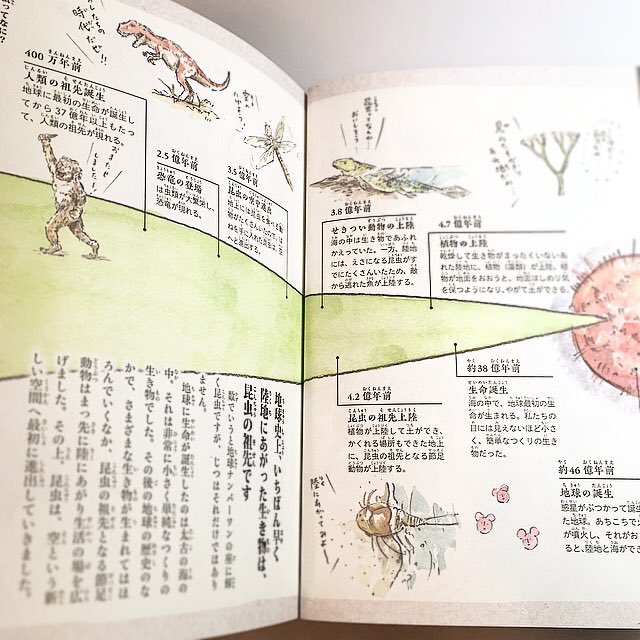 約46億年前
地球の誕生
惑星がぶつかって誕生
た地球。あちこちで
が噴火し、それがお
ると、陸地と海ができ
約38億年前
生命誕生
海の中で、地球最初の生
命が生まれる。私たちの
目には見えないほど小さ
く、簡単なつくりの生き
物だった。
4.7億年前
植物の上陸
乾燥して生き物がまったくいないあ
れた陸地に、植物(藻類)が上陸。植
物が地面をおおうと、地面はしめり気
を保つようになり、やがて土ができる。
4.2億年前
昆虫の祖先上陸
植物が上陸して土ができ、
かくれる場所もできた地上
に、昆虫の祖先となる節足
動物が上陸する。
陸にあがってみよー
3.8億年前
せきつい動物の上陸
海の中は生き物であふれ
かえっていた。一方、陸地
には、えさになる昆虫がす
でにたくさんいたため、敵
から逃れた魚が上陸する。
3.5億年前
2.5億年前
恐竜の登場
は虫類が大繁栄し、
恐竜が現れる。
400万年前
人類の祖先誕生
地球に最初の生命が誕生し
てから37億年以上もたっ
て、人類の祖先が現れる。
おまたせ
しました!
地球史上、いちばん早く
陸地にあがった生き物は、
昆虫の祖先です
数でいうと地球ナンバーワンの座に輝
く昆虫ですが、じつはそれだけではあり
ません。
地球に生命が誕生したのは太古の海の
中。それは非常に小さく単純なつくりの
生き物でした。その後の地球の歴史のな
かで、さまざまな生き物が生まれてはほ
ろんでいくなか、昆虫の祖先となる節足
動物はまっ先に陸にあがり生活の場を広
げました。その上、昆虫は、空という新
しい空間へ最初に進出していきました。